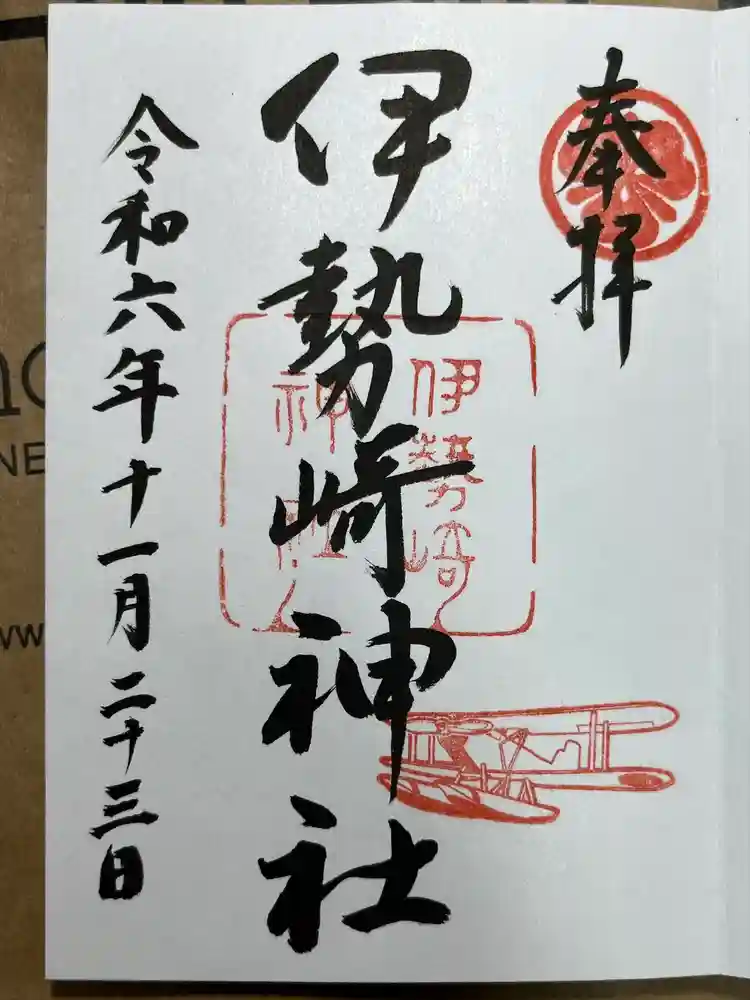 奉拝
伊勢崎神社
伊勢崎
令和六年十一月二十三日